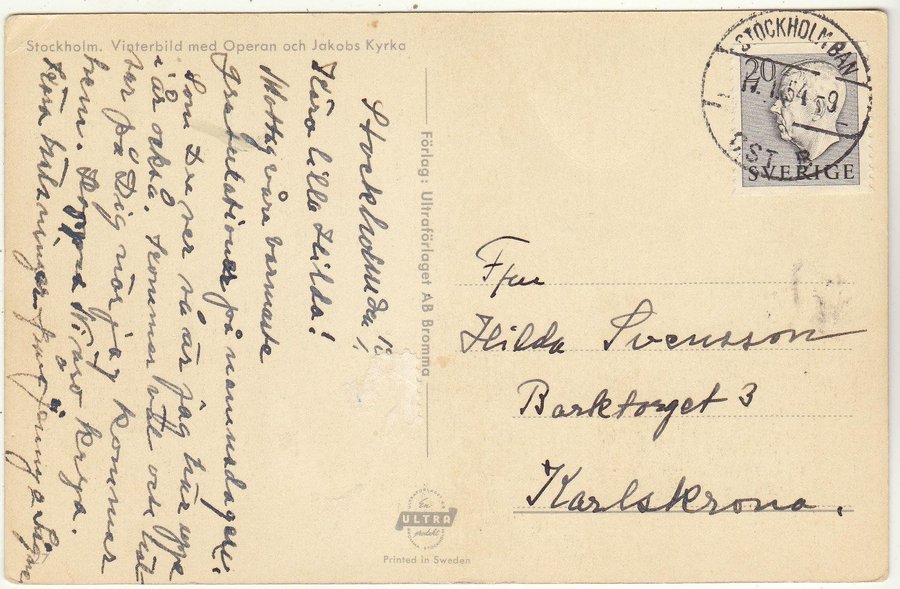 Stockholm. Vinterbild med Operan och Jakobs Kyrka
Stockholm den
Kära lilla Hilda!
Mottag våra varmaste
gratulationer på namnsdagen!
Som Du ser så är jag här uppe
i år också. Kommer väl och häl-
sar på Dig när jag kommer
hem. Hoppas Ni äro krya.
Kära hälsningar Signe
Förlag: Ultraförlaget AB Bromma
En
ULTRA
produkt
Printed in Sweden
STOCKHOLM BAN
20
17. 1. 54
ÖST
SVERIGE
Fru
Hilda Svensson
Barktorget 3
Karlskrona.